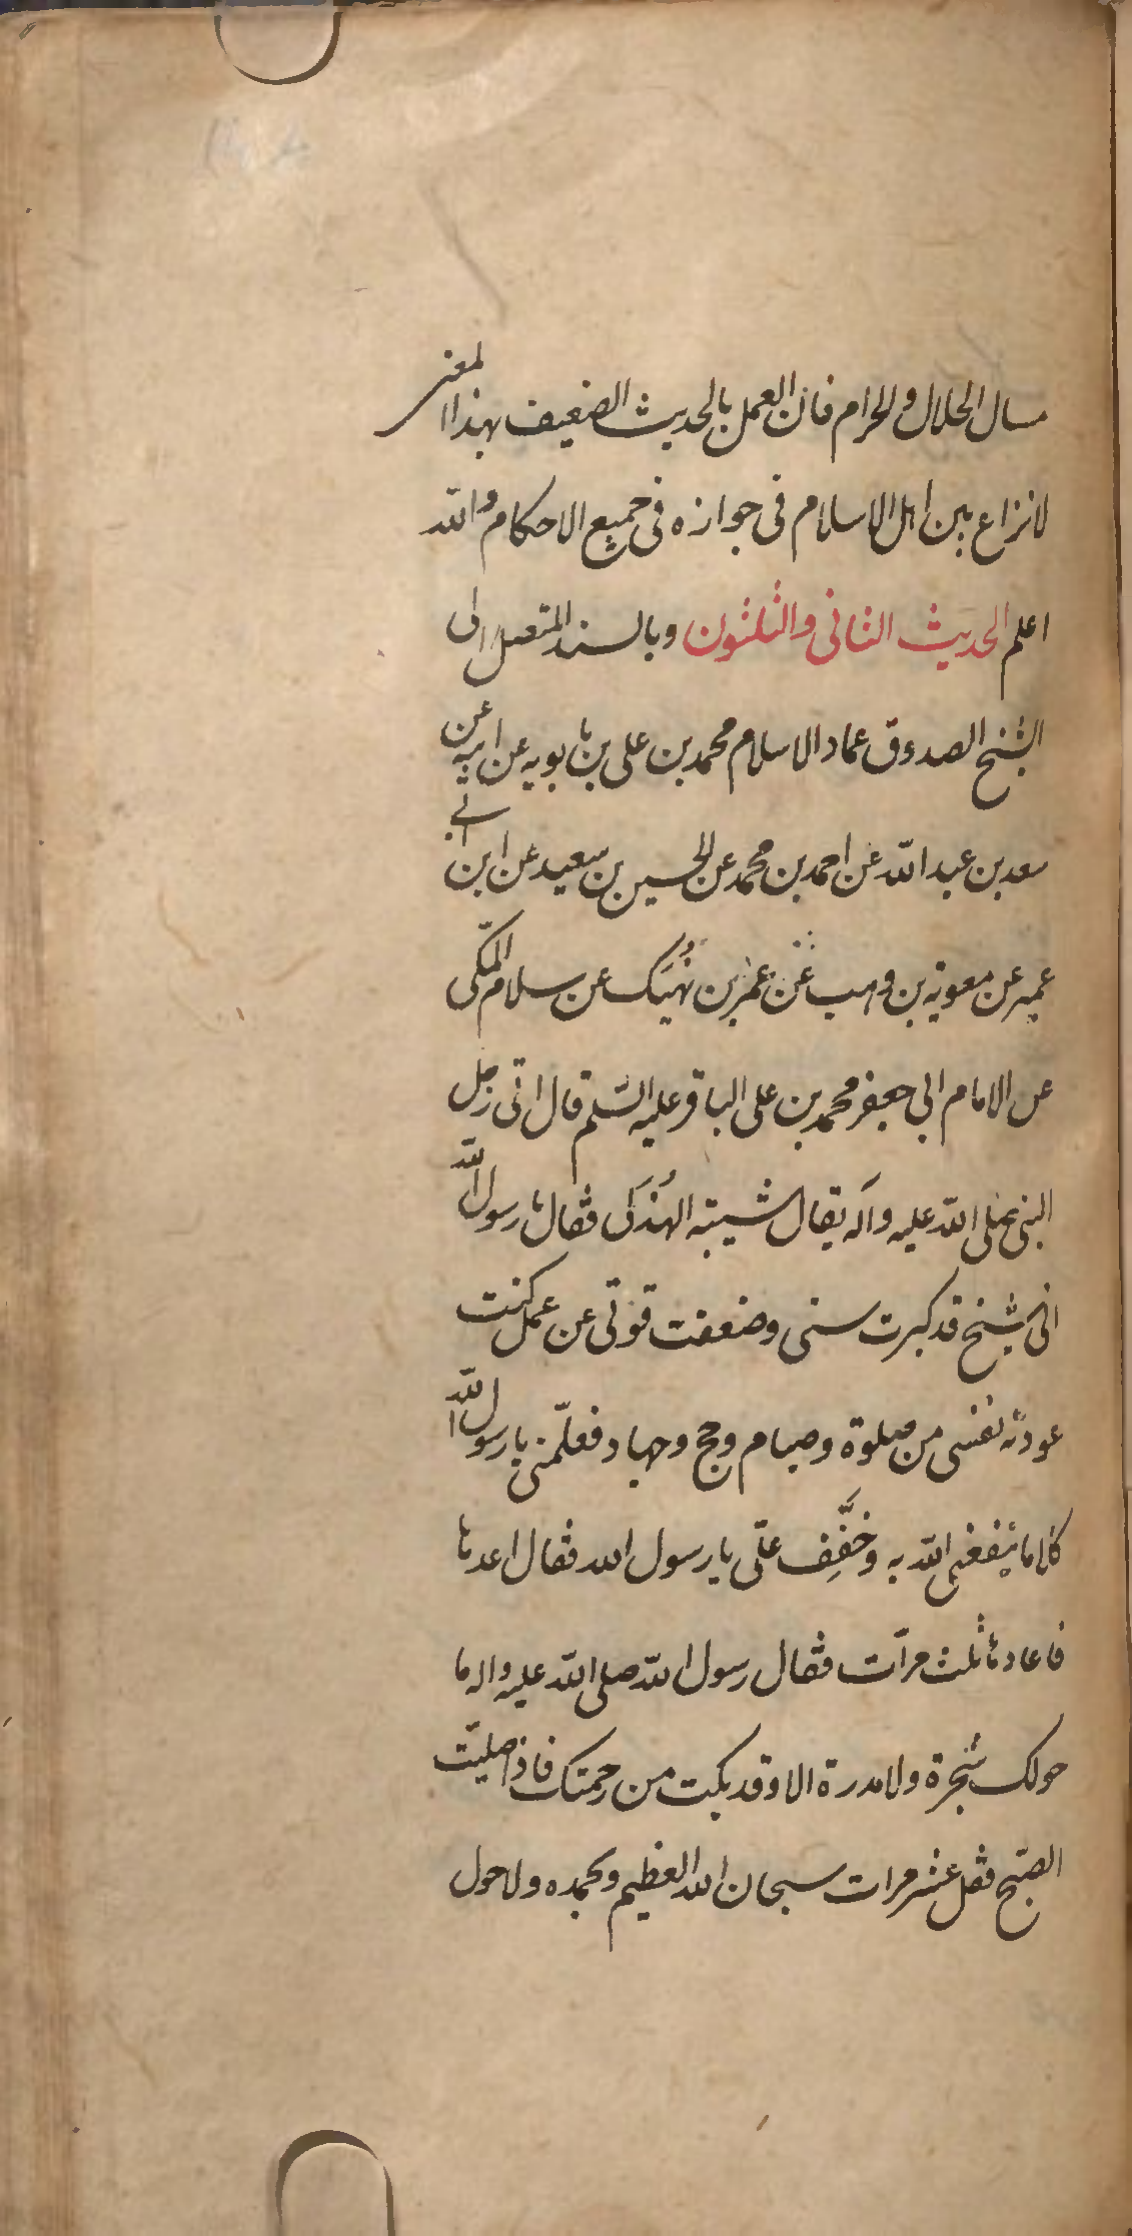 مسال الحلال والحرام فان العمل بالحديث الضعيف بهذا المعنى
لا نزاع بين اهل الاسلام فى جوازه فى جميع الاحكام والله
اعلم الحديث الثانى والثلثون وبالسند المتصل الى
الشيخ الصدوق عماد الاسلام محمد بن على بن بابويه عن ابيه عن
سعد بن عبد الله عن احمد بن محمد عن الحسين بن سعيد عن ابن ابى
عمير عن معوية بن وهب عن عمر بن نُهَيك عن سلام المكّى
عن الامام ابى جعفر محمد بن على الباقر عليه السّلم قال اتى رجل
النبى صلى الله عليه وآله يقال شيبته الهُذَلى فقال يا رسول الله
انى شيخ قد كبرت سنى وضعفت قوتى عن عمل كنت
عودته نفسى من صلوة وصيام وحج وجهاد فعلّمنى يا رسول الله
كلاما ينفعنى الله به وخَفِّف علىّ يا رسول الله فقال اعدها
فاعادها ثلث مرّات فقال رسول الله صلى الله عليه واله ما
حولك شجرة ولا مدرة الا وقد بكت من رحمتك فاذا صليت
الصبح فقل عشر مرات سبحان الله العظيم وبحمده ولا حول